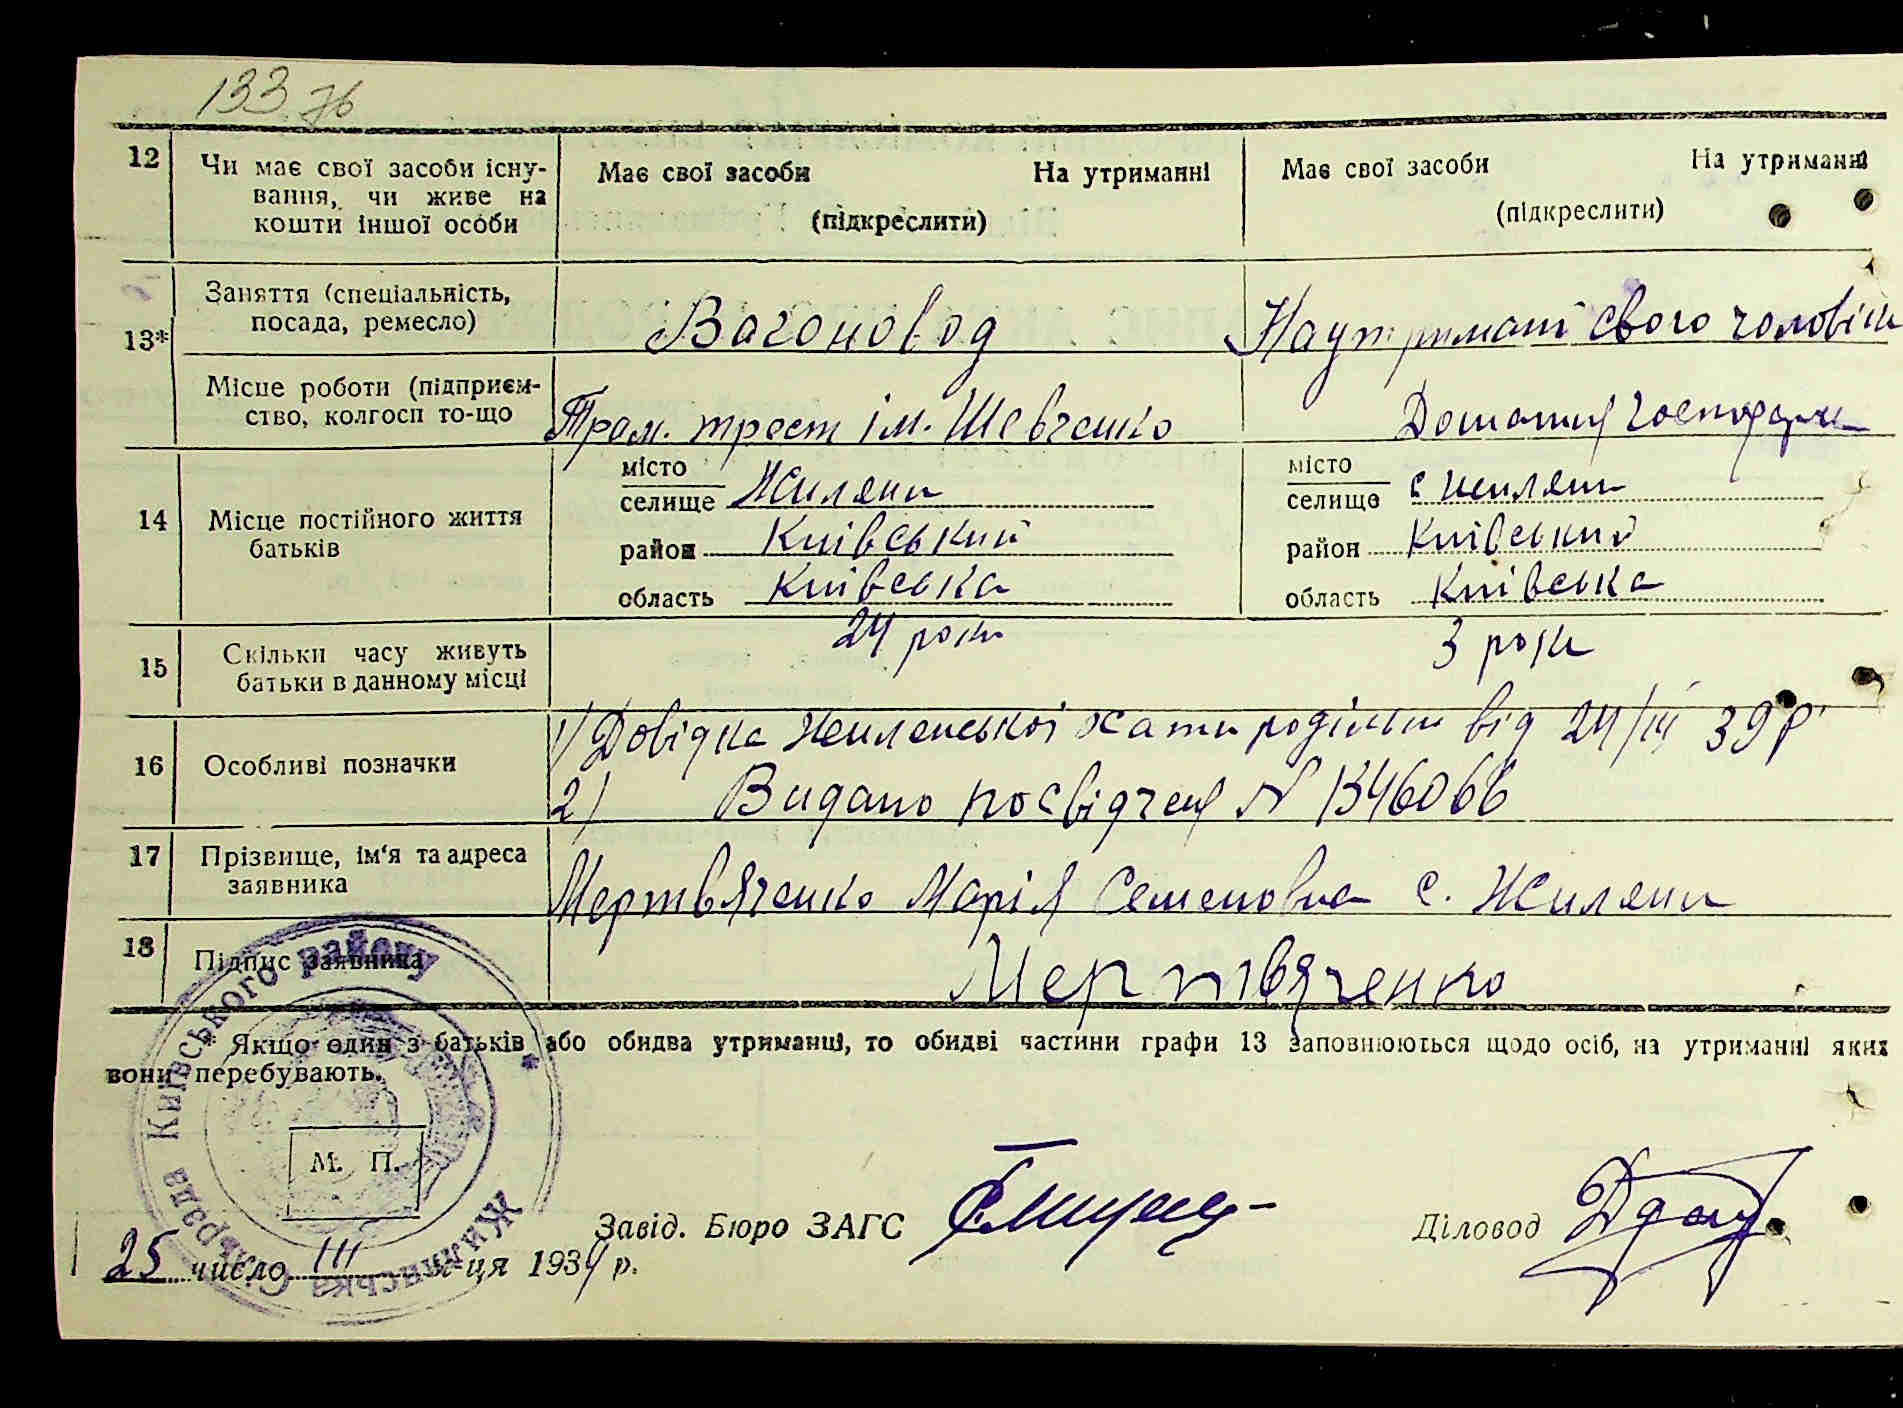 133 зв
12 Чи має свої засоби існу-
вання, чи живе на
кошти іншої особи
Має свої засоби На утриманні
(підкреслити)
Має свої засоби На утриманні
(підкреслити)
13*
Заняття (спеціальність,
посада, ремесло)
Вагоновод
На утримані свого чоловіка
Місце роботи (підприєм-
ство, колгосп то-що
Трам. трест ім. Шевченко
Домашня господарка
14 Місце постійного життя
батьків
місто
селище Жиляни
район Київський
область Київська
місто
селище с Жиляни
район Київський
область Київська
15 Скільки часу живуть
батьки в данному місці
24 роки
3 роки
16 Особливі позначки
1) Довідка Жилянської хати родільні від 24/III 39 р
2) Видано посвідчен N 1346066
17 Прізвище, ім'я та адреса
заявника
Мертвяченко Марія Семеновна с. Жиляни
18 Підпис заявника
Мертвяченко
* Якщо один з батьків або обидва утриманці, то обидві частини графи 13 заповнюються щодо осіб, на утриманні яких
вони перебувають.
Жилянська Сільрада Київського району *
М. П.
Завід. Бюро ЗАГС
Діловод
25 число III м-ця 1939 р.